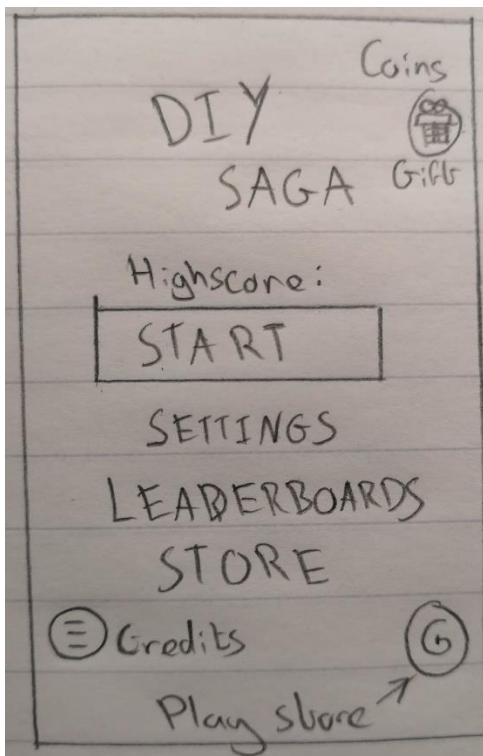 Coins
DIY
SAGA
Gift
Highscore:
START
SETTINGS
LEADERBOARDS
STORE
Credits
G
Play store